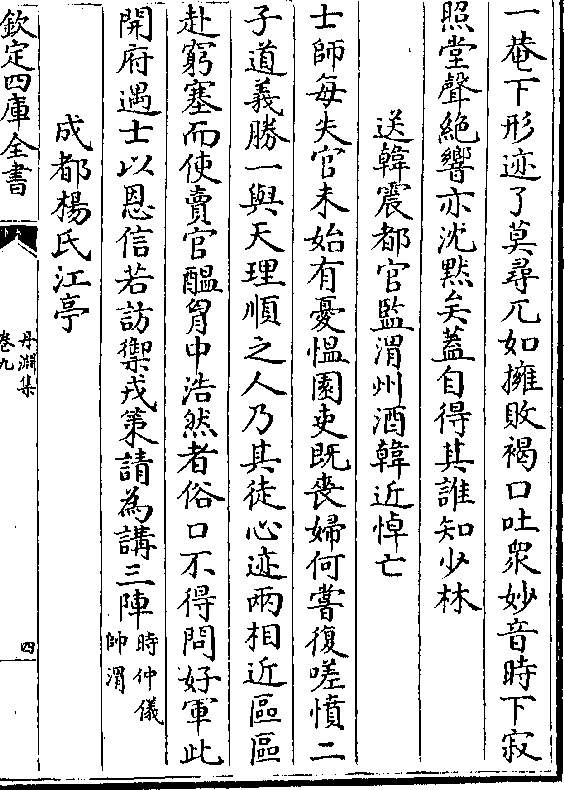 一菴下形迹了莫尋兀如擁敗褐口吐衆妙音時下寂
照堂聲絶響亦沈黙矣蓋自得其誰知少林
送韓震都官監渭州酒韓近悼亡
士師每失官未始有憂愠園吏既喪婦何嘗復嗟憤二
子道義勝一與天理順之人乃其徒心迹兩相近區區
赴窮塞而使賣官醖胷中浩然者俗口不得問好軍此
開府遇士以恩信若訪禦戎策請為講三陣時仲儀
帥渭
成都楊氏江亭
欽定四庫全書
丹淵集
卷九
四